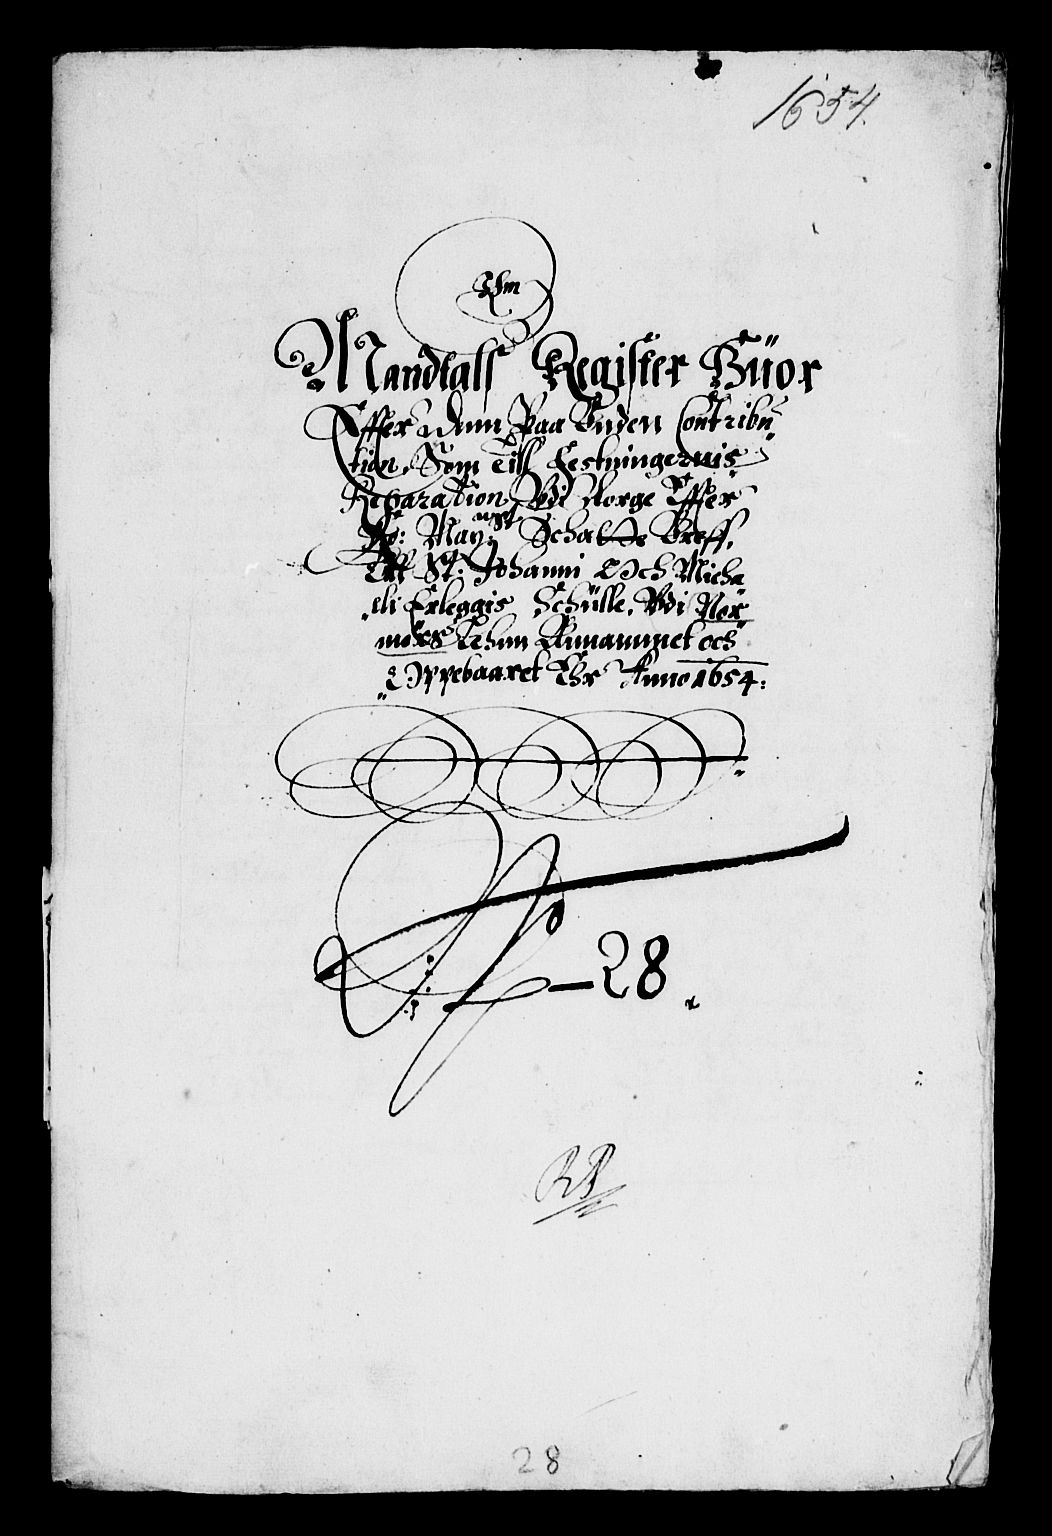 1654.
Mandtals Register Huor
Effter denn Paa Buden Contribu
tion, Som Till Festningernis
Reparation Vdi Norge Effter
Ko: May:tts Schatte Breff,
Till St: Johanni Och Micha
eli Erleggis Schulle, Vdi Nor
mørs Lehnn Annammet och
Oppebaaret Ehr Anno 1654:
28
28